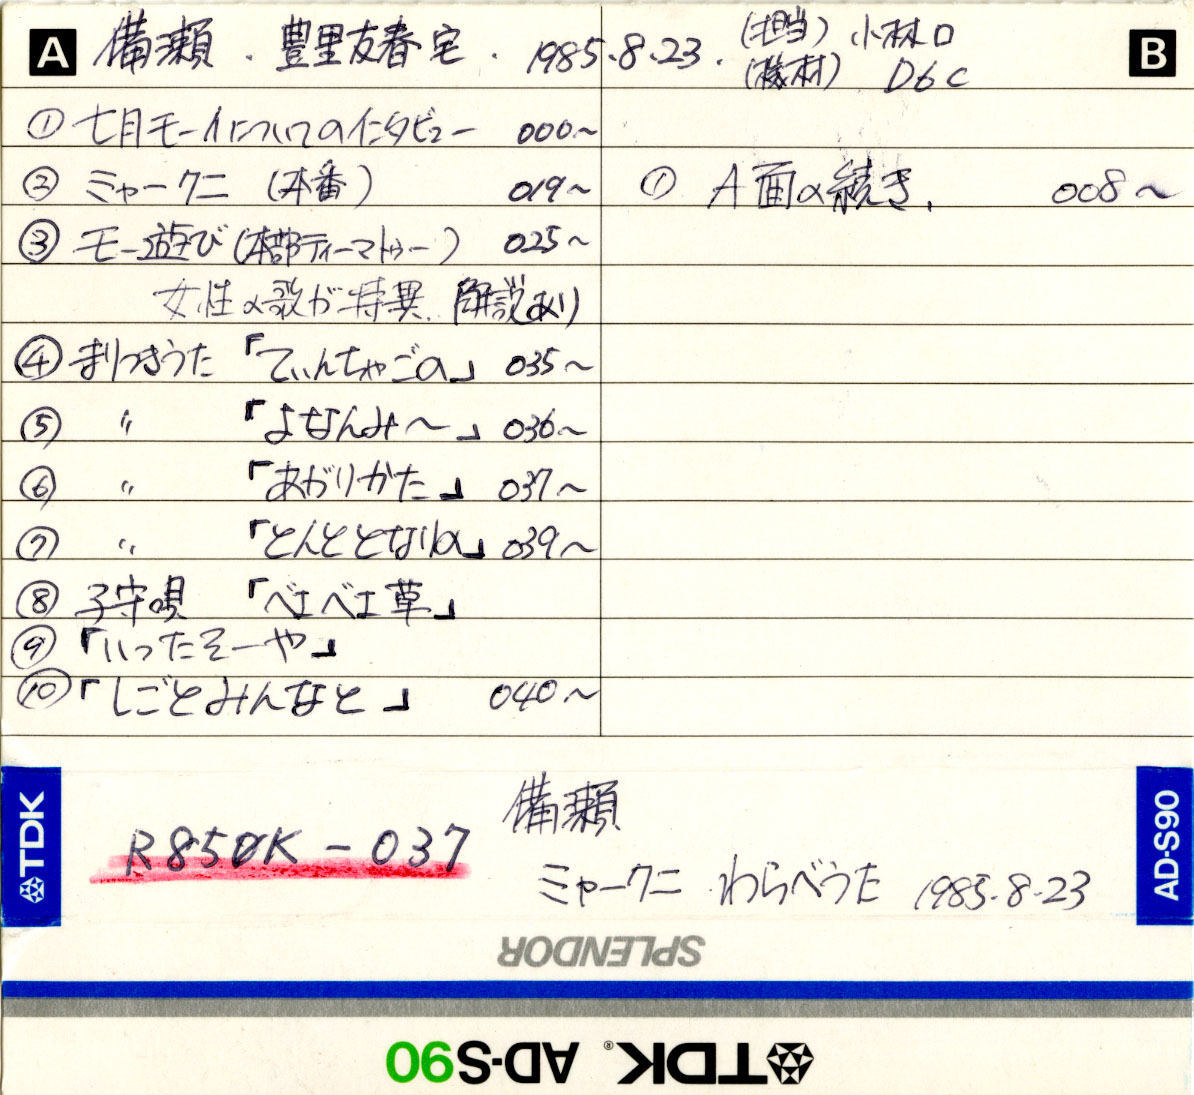 A 備瀬 . 豊里友春宅 . 1985.8.23. (担当) 小林口 B
(機材) D6C
① 七月モーイについてのインタビュー 000~
② ミャークニ (本番) 019~ ① A面の続き. 008~
③ モー遊び(本部ティーマトゥー) 025~
女性の歌が特異. 解説あり
④ まりつきうた 「てぃんちゃごの」 035~
⑤ 〃 「よなんみ~」 036~
⑥ 〃 「あがりかた」 037~
⑦ 〃 「とんととなりの」 039~
⑧ 子守唄 「ベエベエ草」
⑨ 「いったそーや」
⑩ 「しごとみんなと」 040~
TDK
R850K-037
備瀬
ミャークニ わらべうた 1985.8.23
AD-S90
SPLENDOR
TDK® AD-S90